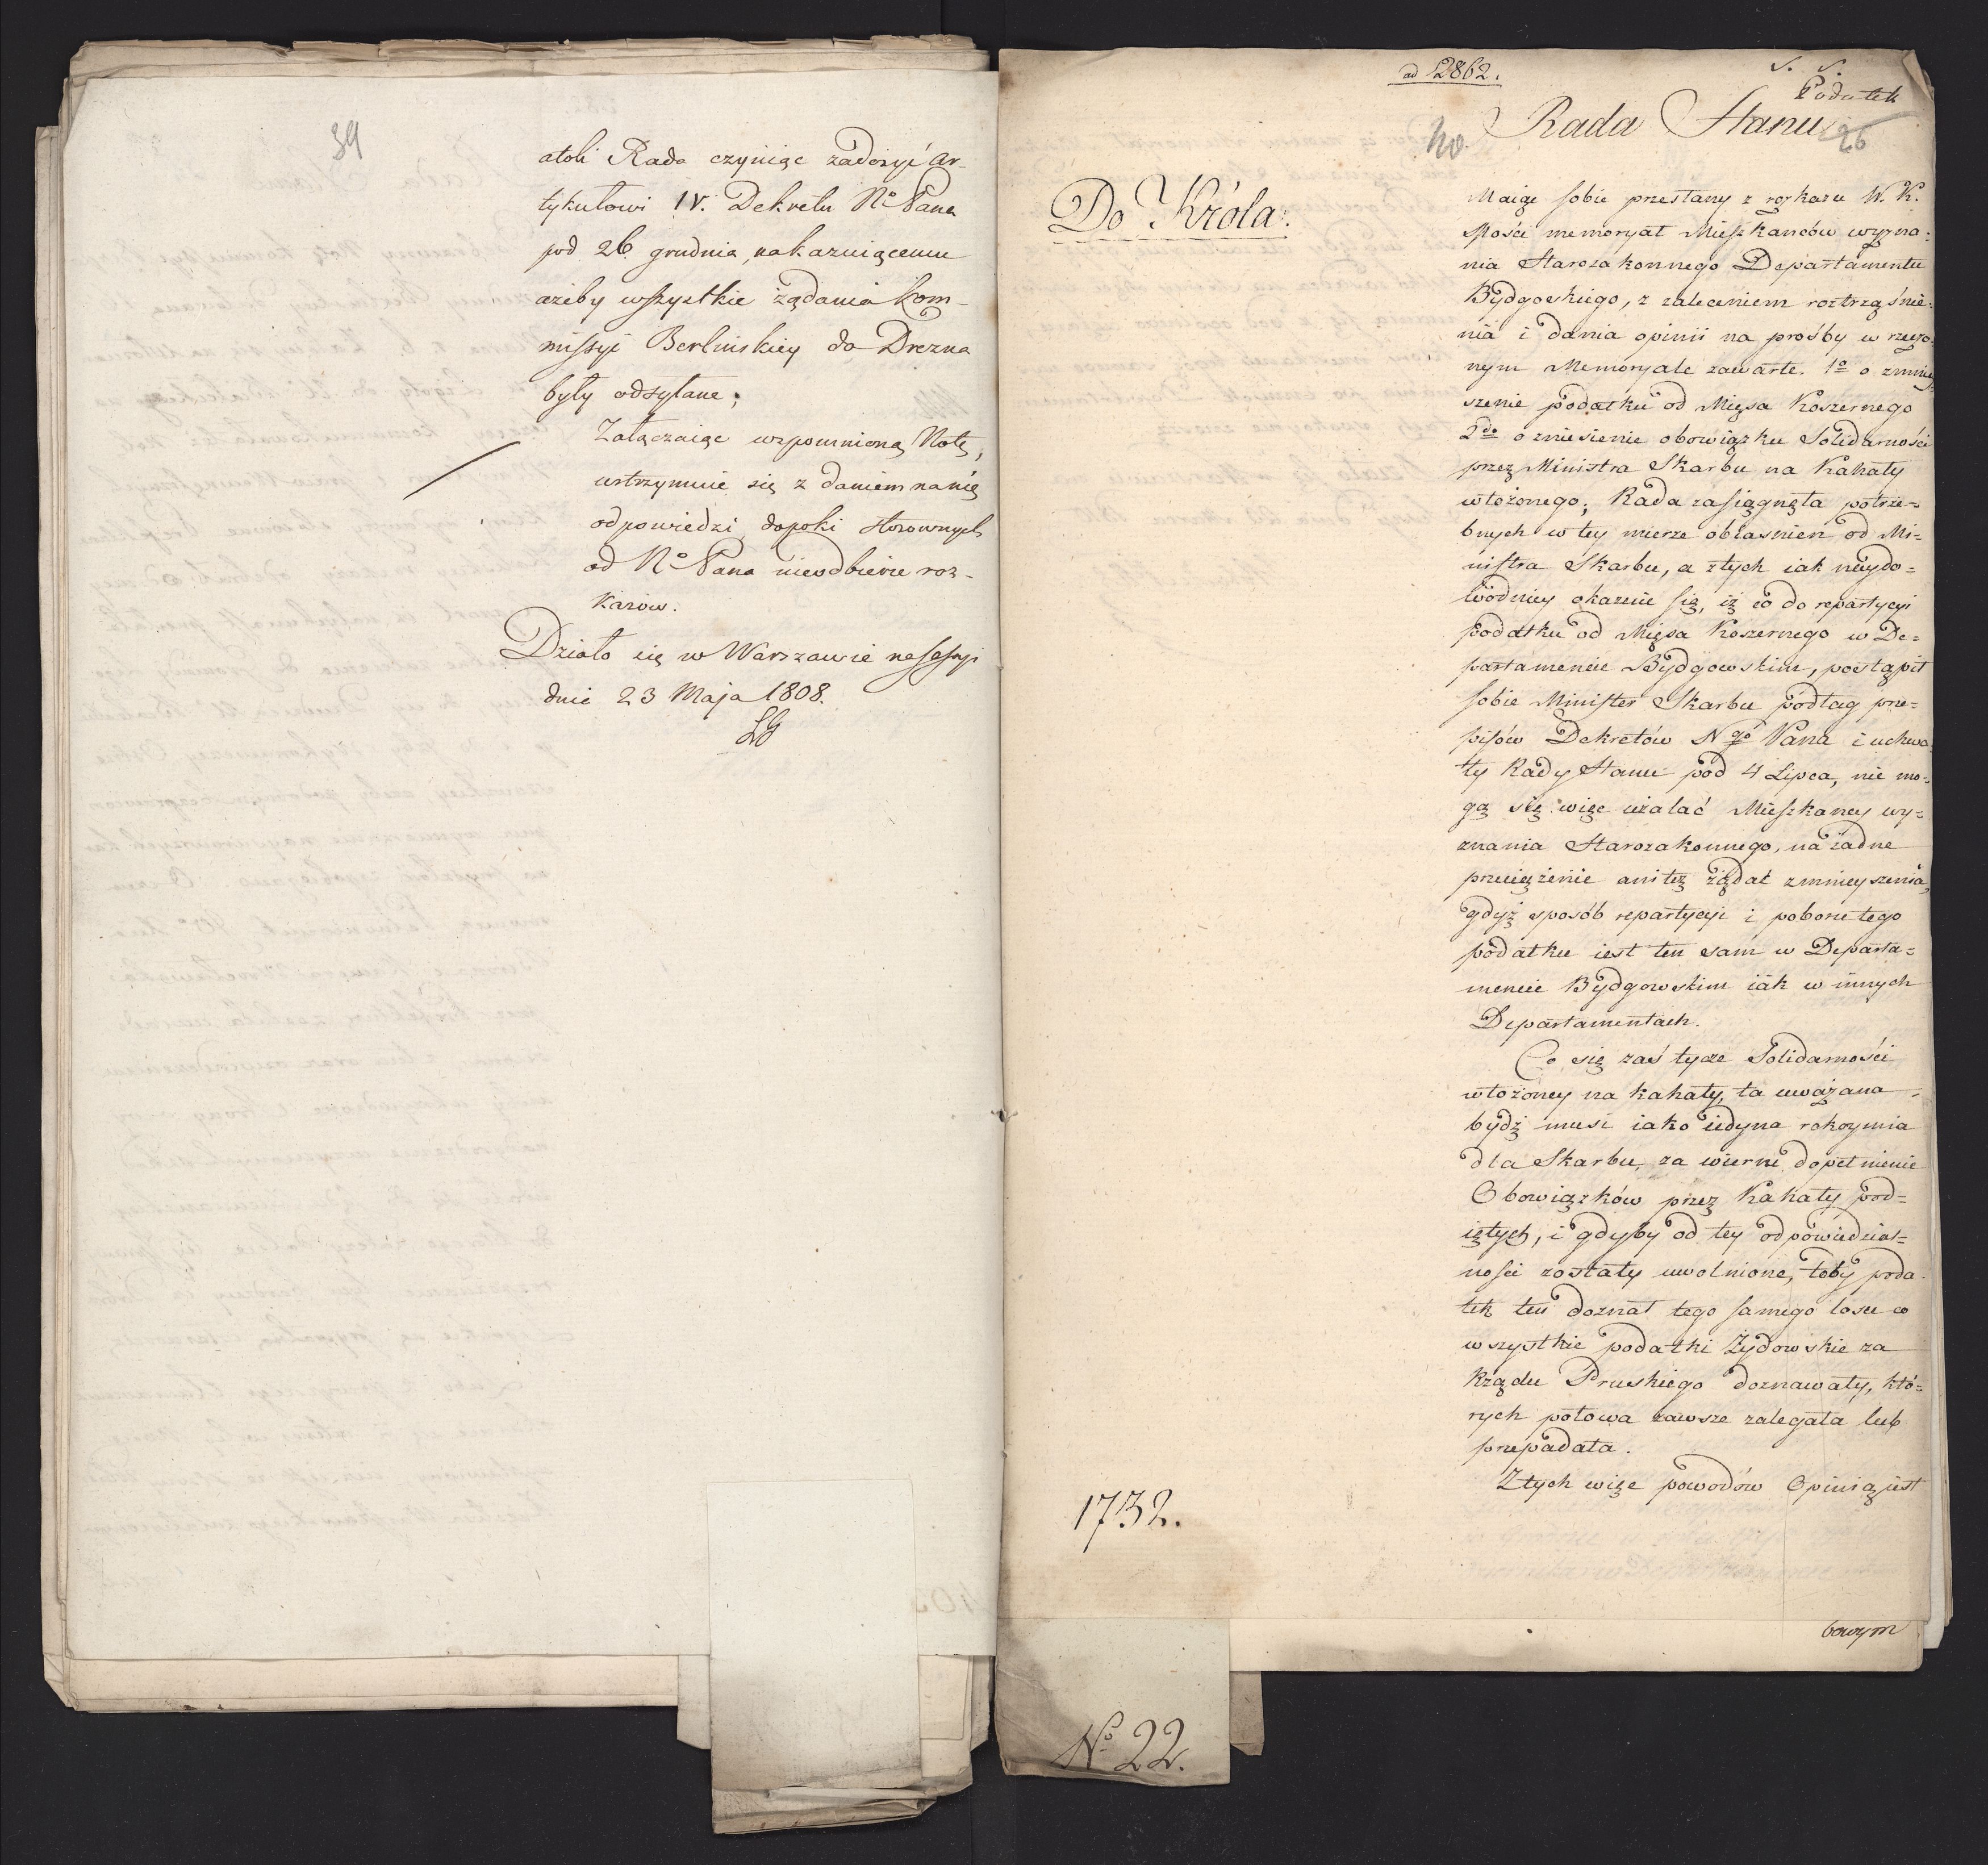 39
atoli Rada czyniąc zadosyć Ar-
tykułowi IV. Dekretu No Pana
pod 26 grudnia, nakazuiącemu
ażeby wszystkie żądania Kom-
missyi Berlinskiey do Drezna
były odsyłane;
Załączaiąc wspomnioną Notę,
wstrzymuie się z daniem na nię
odpowiedzi dopoki stosownych
od No Pana nieodbierze roz-
kazow.
Działo się w Warszawie na sessyi
dnia 23 Maja 1808.
ad 2862.
Podatek
Rada Stanu
40.
26
Do Króla.
Maiąc sobie przesłany z rozkazu W. K.
Mości memoryał Mieszkanców wyzna=
nia Starozakonnego Departamentu
Bydgoskiego, z zaleceniem roztrząśnie=
nia i dania opinii na prośby w rzeczo=
nym Memoryale zawarte. 1o o zmniey=
szenie podatku od Mięsa Koszernego
2do o zniesienie obowiązku Solidarności
przez Ministra Skarbu na Kahały
włożonego; Rada zasiągnęła potrze=
bnych w tey mierze obiasnien od Mi=
nistra Skarbu, a z tych iak naydo=
wodniey okazuie się, iż co do repartycyi
podatku od Mięsa Koszernego w De=
partamencie Bydgowskim, postąpił
sobie Minister Skarbu podług prze=
pisów Dekretów Ngo Pana i uchwa=
ły Rady Stanu pod 4 Lipca, nie mo=
gą się więc użalać Mieszkancy wy=
znania Starozakonnego, na żadne
przeciążenie ani też żądać zmnieyszenia,
gdyż sposób repartycyi i poboru tego
podatku iest ten sam w Departa=
mencie Bydgowskim iak w innych
Departamentach.
Co się zaś tycze Solidarności
włożoney na kahały, ta uważana
bydź musi iako iedyna rękoymia
dla Skarbu, za wierne dopełnienie
Obowiązków przez Kahały pod=
iętych, i gdyby od tey odpowiedzial=
nosci zostały uwolnione, toby poda=
tek ten doznał tego samego losu co
wszystkie podatki Żydowskie za
Rządu Pruskiego doznawały, któ=
rych połowa zawsze zalegała lub
przepadała.
Z tych więc powodów Opinią iest
1732.
bowym
No 22.